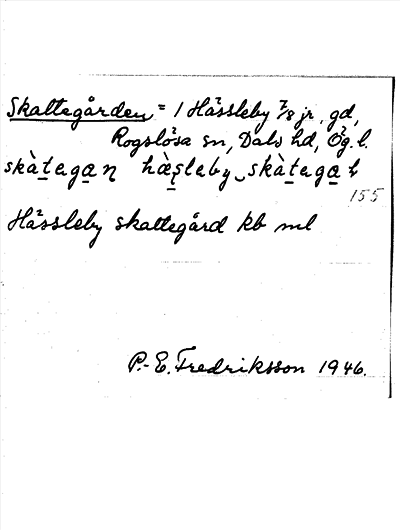 Skattegården = 1 Hässleby 7/8 jr, gd,
Rogslösa sn, Dals hd, Ög. l.
skàtegaɳ hæ̀ʂleby skàtegaɽ
155
Hässleby skattegård kb ml
P.-E. Fredriksson 1946.